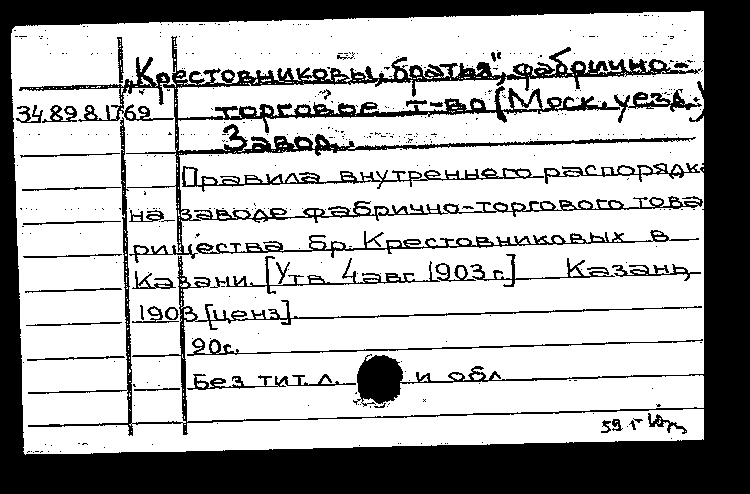 „Крестовниковы, братья", фабрично-
34.89.8.1769 торговое т-во (Моск. уезд.)
Завод.
Правила внутреннего распорядка
на заводе фабрично-торгового това
рищества бр. Крестовниковых в
Казани. [Утв. 4 авг. 1903 г.] Казань,
1903 [ценз].
20с.
Без тит. л. и обл
59 г